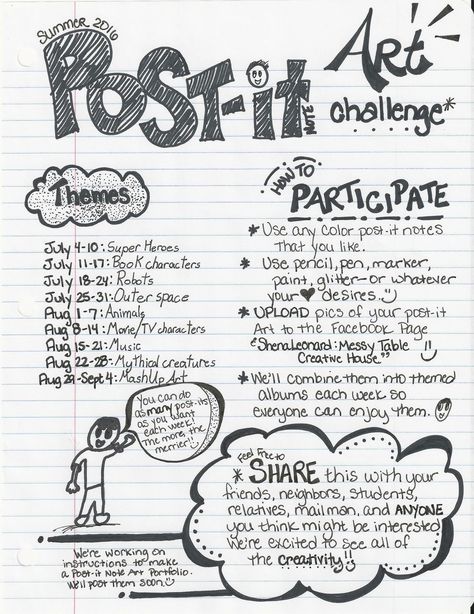 Summer 2016
Post-it
Note
Art
challenge*
Themes
July 4-10: Super Heroes
July 11-17: Book characters
July 18-24: Robots
July 25-31: Outer space
Aug 1-7: Animals
Aug 8-14: Movie/TV characters
Aug 15-21: Music
Aug 22-28: Mythical creatures
Aug 29-Sept 4: MashUp Art
How to
Participate
* Use any color post-it notes
that you like.
* Use pencil, pen, marker,
paint, glitter- or whatever
your ♥ desires.
* UPLOAD pics of your post-it
Art to the Facebook Page
"ShenaLeonard: Messy Table
Creative House""
* We'll combine them into themed
albums each week so
everyone can enjoy them.
You can do
as many post-its
as you want
each week!
The more, the
merrier!!
We're working on
instructions to make
a Post-it Note Art Portfolio.
We'll post them soon.
Feel Free to
* SHARE this with your
friends, neighbors, students,
relatives, mailman, and ANYONE
you think might be interested
We're excited to see all of
the creativity!!